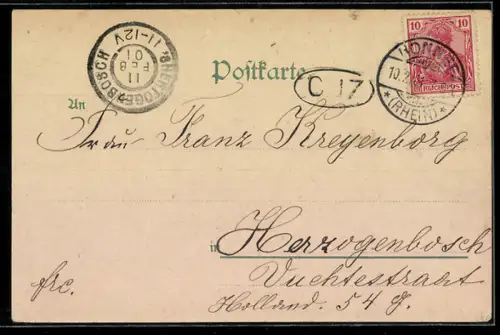 10 10
REICHSPOST
HONNEF
10.2.
*(RHEIN)*
'SHERTOGENBOSCH
11-12V
11
FEB
01
Postkarte
C 17
An
Frau Franz Kreyenborg
in Herzogenbosch
Vuchtestraat
frc.
Holland. 54 g.